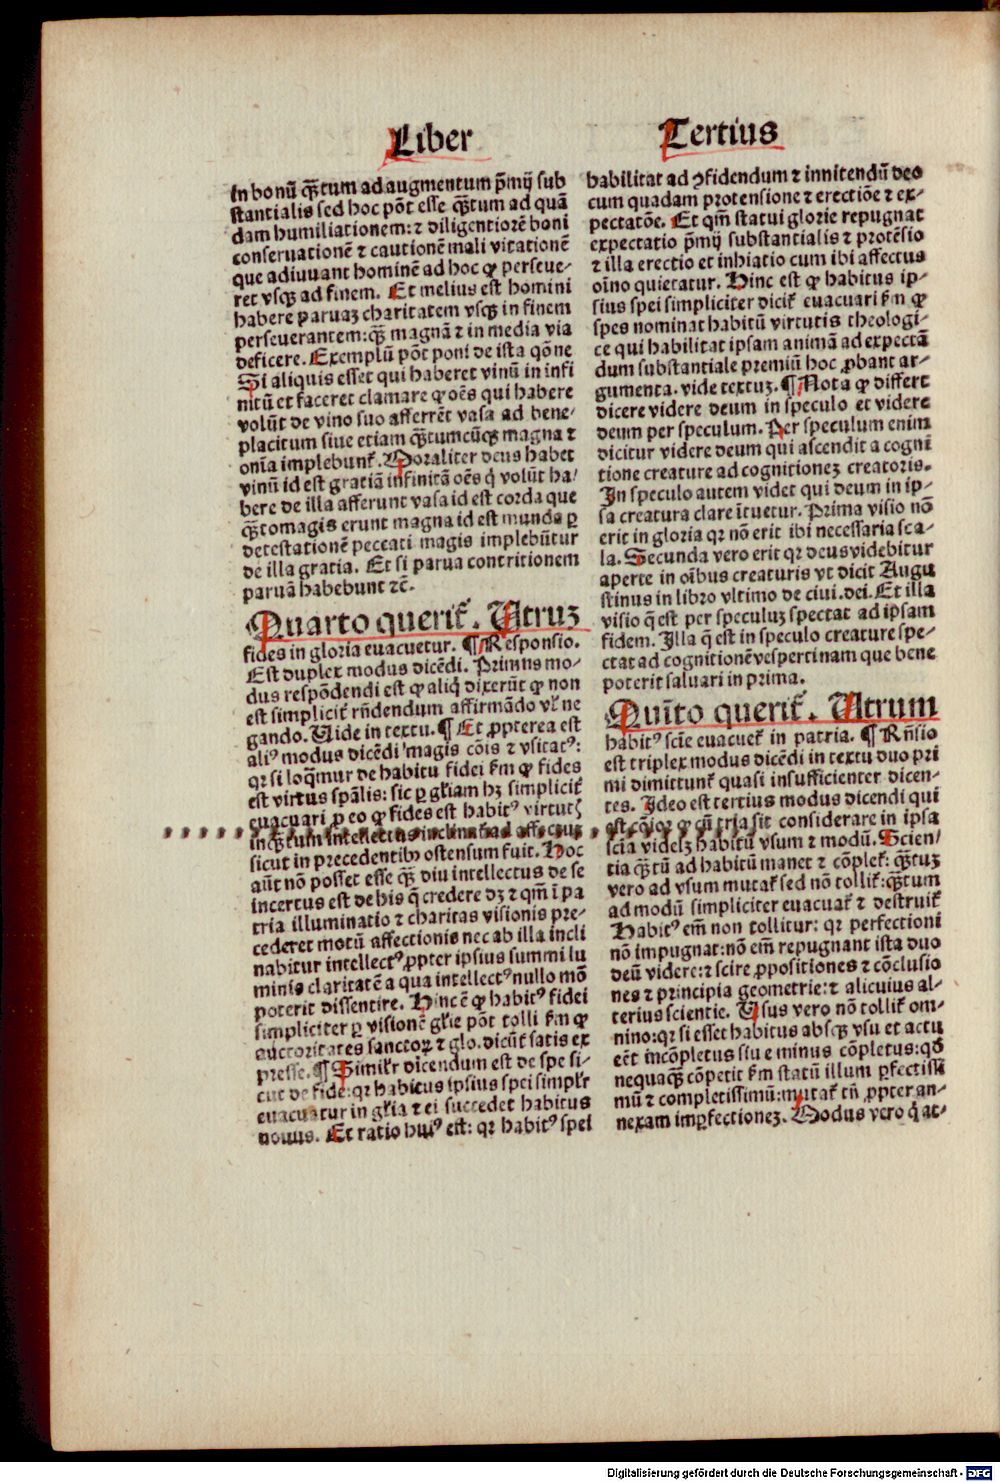 Liber
Tertius
in bonū qꝫtum ad augmentum p̄mij sub
stantialis sed hoc pōt esse qꝫtum ad quā
dam humiliationem: ⁊ diligentiorē boni
conseruationē ⁊ cautionē mali vitationē
que adiuuant hominē ad hoc ꝙ perseue-
ret vsqꝫ ad finem. Et melius est homini
habere paruaꝫ charitatem vsqꝫ in finem
perseuerantem: qꝫ magnā ⁊ in media via
deficere. Exemplū pōt poni de ista qōne
Si aliquis esset qui haberet vinū in infi
nitū et faceret clamare ꝙ oēs qui habere
volūt de vino suo afferrēt vasa ad bene-
placitum siue etiam qꝫtumcūqꝫ magna ⁊
onīa implebunt̄. Moraliter deus habet
vinū id est gratiā infinitā oēs q̇ volūt ha/
bere de illa afferunt vasa id est corda que
qꝫtomagis erunt magna id est munda ꝑ
detestationē peccati magis implebūtur
de illa gratia. Et si parua contritionem
paruā habebunt ⁊c̄.
Quarto querit̄. Utruꝫ
fides in gloria euacuetur. ¶ Responsio.
Est duplex modus dicēdi. Primus mo-
dus respōdendi est ꝙ aliq̇ dixerūt ꝙ non
est simplicit̄ rn̄dendum affirmādo vl̄ ne
gando. Uide in textu. ¶ Et ꝓpterea est
aliꝰ modus dicēdi magis cōis ⁊ vsitatꝰ:
qꝛ si loq̄mur de habitu fidei s̄m ꝙ fides
est virtus sp̄alis: sic ꝑ gl̄iam hꝫ simplicit̄
euacuari ꝑ eo ꝙ fides est habitꝰ virtutꝭ
sicut in precedentibꝫ ostensum fuit. Hoc
aūt nō posset esse qꝫ diu intellectus de se
incertus est de his q̄ credere dꝫ ⁊ qm̄ ī pa
tria illuminatio ⁊ charitas visionis pre-
cederet motū affectionis nec ab illa incli
nabitur intellectꝰ ꝓpter ipsius summi lu
minis claritatē a qua intellectꝰ nullo mō
poterit dissentire. Hinc ē ꝙ habitꝰ fidei
simpliciter ꝑ visionē gl̄ie pōt tolli s̄m ꝙ
auctoritates sanctoꝝ ⁊ glo. dicūt satis ex
presse. ¶ Simil̄r dicendum est de spe si-
cut de fide: qꝛ habitus ipsius spei simpl̄r
euacuatur in gl̄ia ⁊ ei succedet habitus
nouus. Et ratio huiꝰ est: qꝛ habitꝰ spei
habilitat ad ꝯfidendum ⁊ innitendū deo
cum quadam protensione ⁊ erectiōe ⁊ ex-
pectatōe. Et qm̄ statui glorie repugnat
expectatio p̄mij substantialis ⁊ protēsio
⁊ illa erectio et inhiatio cum ibi affectus
oīno quietatur. Hinc est ꝙ habitus ip-
sius spei simpliciter dicit̄ euacuari s̄m ꝙ
spes nominat habitū virtutis theologi-
ce qui habilitat ipsam animā ad expectā
dum substantiale premiū hoc ꝓbant ar-
gumenta. vide textuꝫ. ¶ Nota ꝙ differt
dicere videre deum in speculo et videre
deum per speculum. Per speculum enim
dicitur videre deum qui ascendit a cogni
tione creature ad cognitioneꝫ creatoris.
In speculo autem videt qui deum in ip-
sa creatura clare ītuetur. Prima visio nō
erit in gloria qꝛ nō erit ibi necessaria sca-
la. Secunda vero erit qꝛ deus videbitur
aperte in oībus creaturis vt dicit Augu
stinus in libro vltimo de ciui. dei. Et illa
visio q̄ est per speculuꝫ spectat ad ipsam
fidem. Illa q̄ est in speculo creature spe-
ctat ad cognitionē vespertinam que bene
poterit saluari in prima.
Quīto querit̄. Utrum
habitꝰ scīe euacuet̄ in patria. ¶ Rn̄sio
est triplex modus dicēdi in textu duo pri
mi dimittunt̄ quasi insufficienter dicen-
tes. Ideo est tertius modus dicendi qui
est cōīor ꝙ cū tria sit considerare in ipsa
scīa videlꝫ habitū vsum ⁊ modū. Scien/
tia qꝫtū ad habitū manet ⁊ cōplet̄: qꝫtuꝫ
vero ad vsum mutat̄ sed nō tollit̄: qꝫtum
ad modū simpliciter euacuat̄ ⁊ destruit̄
Habitꝰ em̄ non tollitur: qꝛ perfectioni
nō impugnat: nō em̄ repugnant ista duo
deū videre: ⁊ scire ꝓpositiones ⁊ cōclusio
nes ⁊ principia geometrie: ⁊ alicuius al-
terius scientie. Usus vero nō tollit̄ om-
nino: qꝛ si esset habitus absqꝫ vsu et actu
eēt incōpletus siue minus cōpletus: qd̄
nequaqꝫ cōpetit s̄m statū illum ꝑfectissi
mū ⁊ completissimū: mutat̄ tn̄ ꝓpter an-
nexam imꝑfectioneꝫ. Modus vero q̇ at-
Digitalisierung gefördert durch die Deutsche Forschungsgemeinschaft - DFG